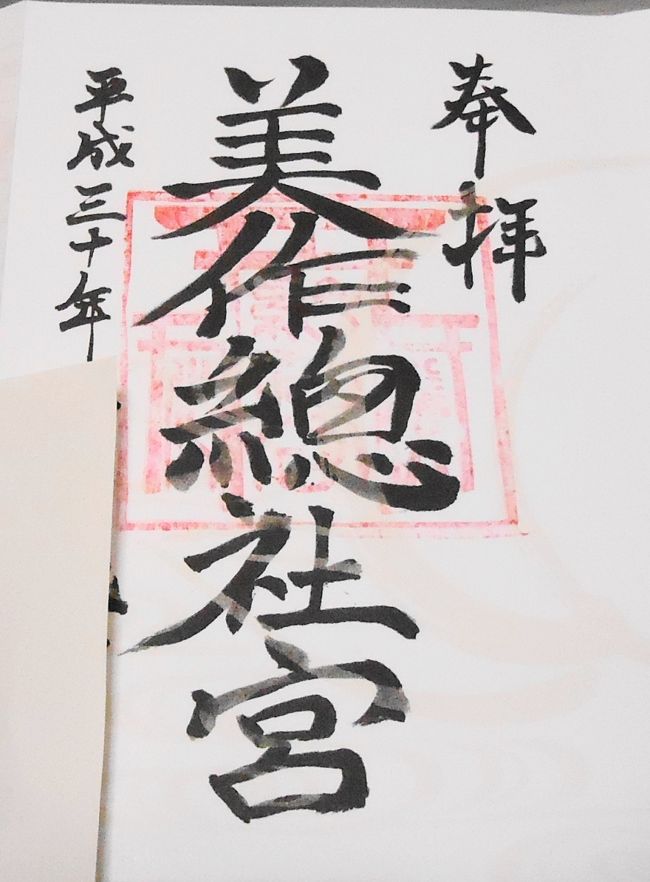 奉拝
美作總社宮
平成三十年